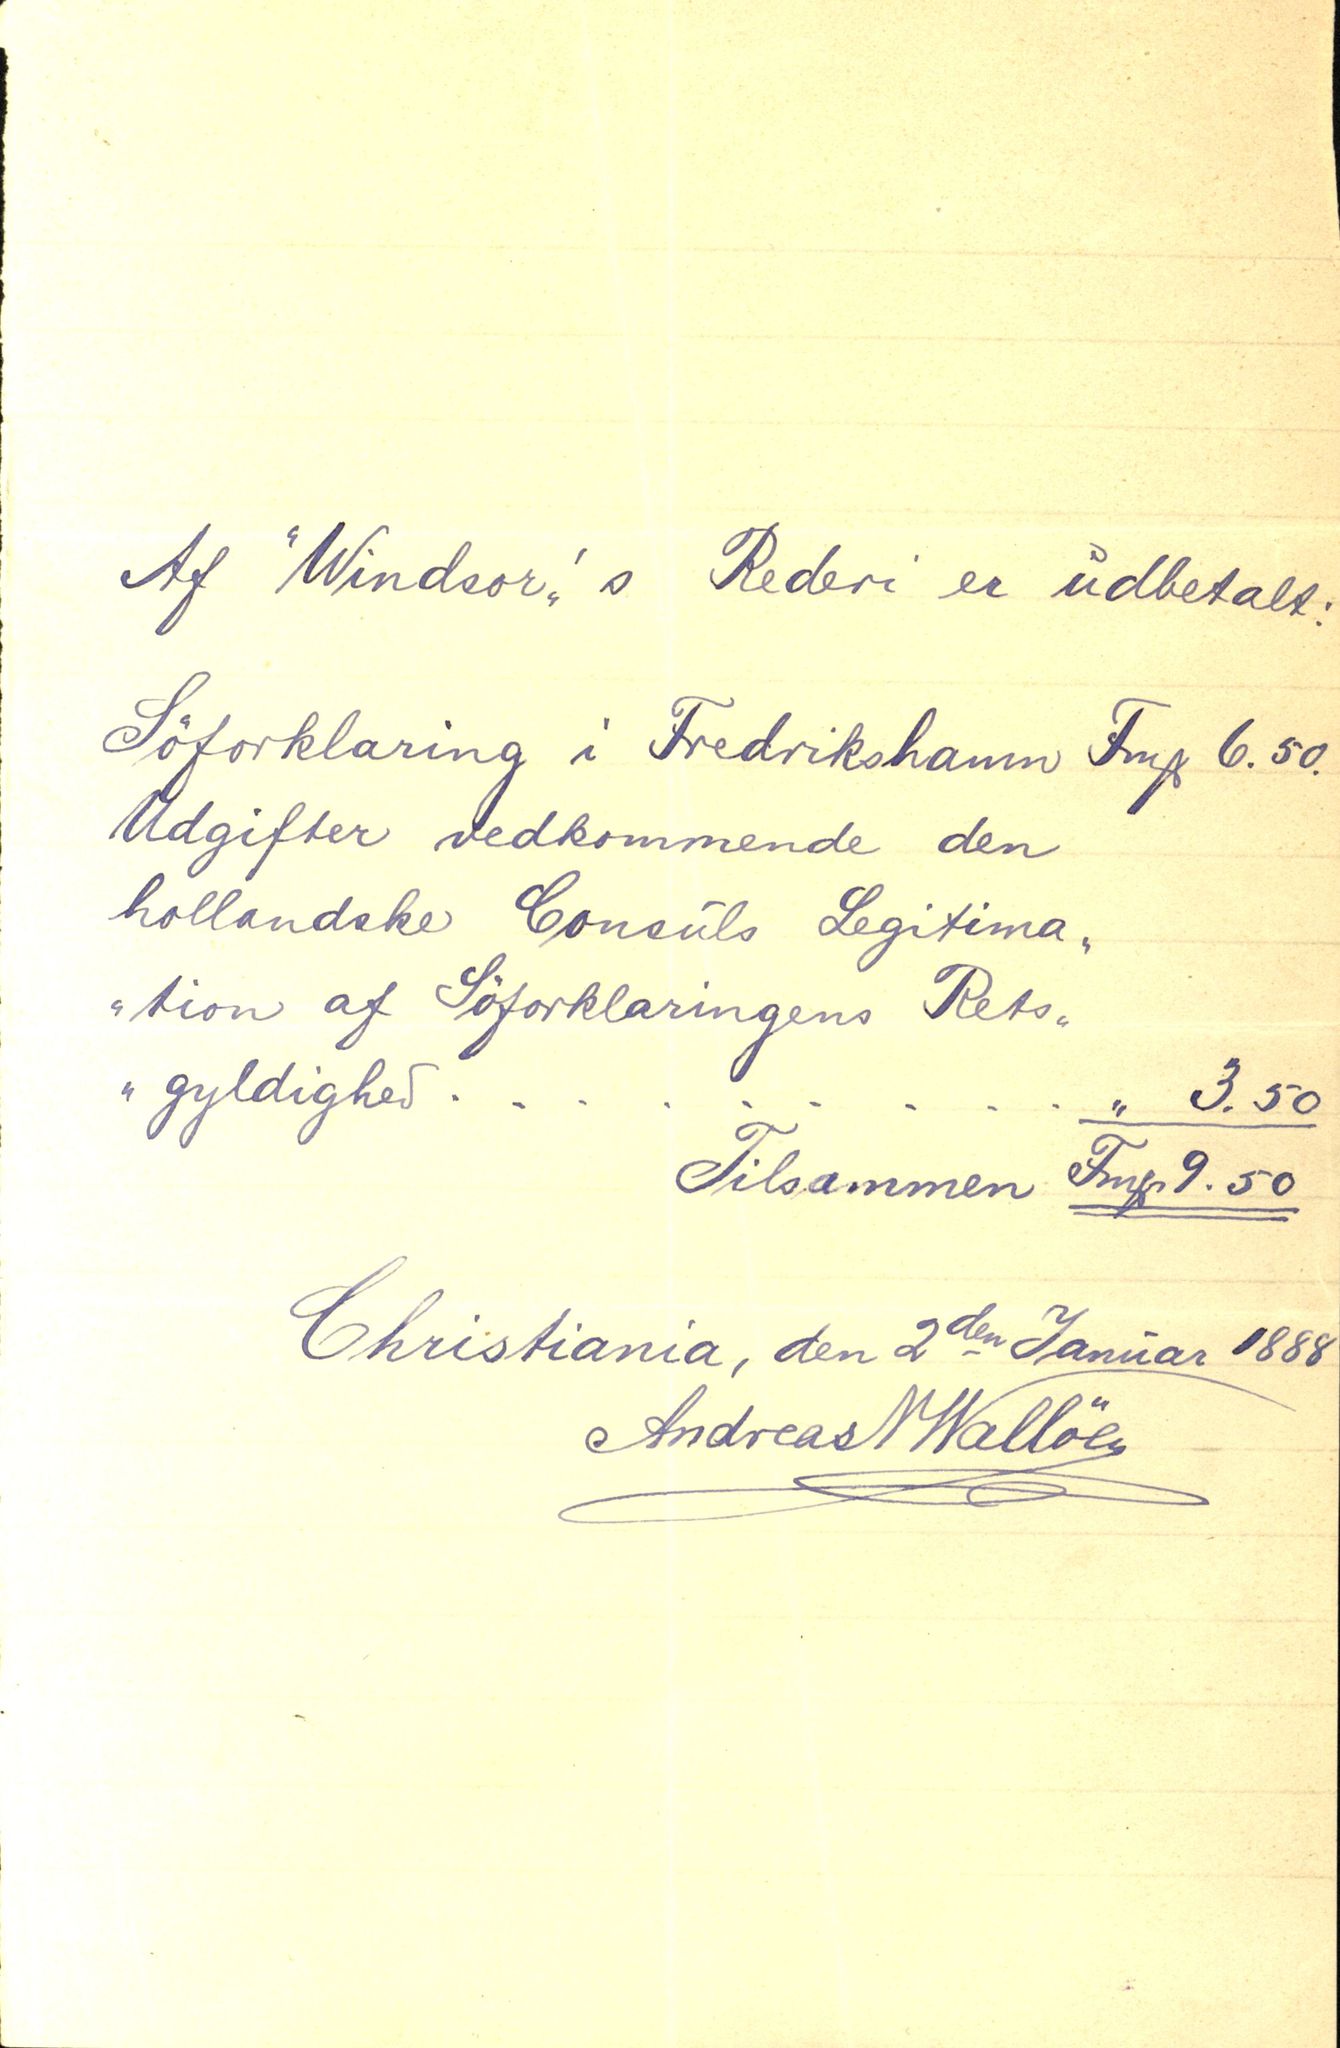 Af "Windsor„'s Rederi er udbetalt:
Söforklaring i Fredrikshamn Fmp 6.50.
Udgifter vedkommende den
hollandske Consuls Legitima„
„tion af Söforklaringens Rets„
„gyldighed . . . . . . . . . „ 3.50
Tilsammen Fmp. 9.50
Christiania, den 2den Januar 1888
Andreas N Wallöe